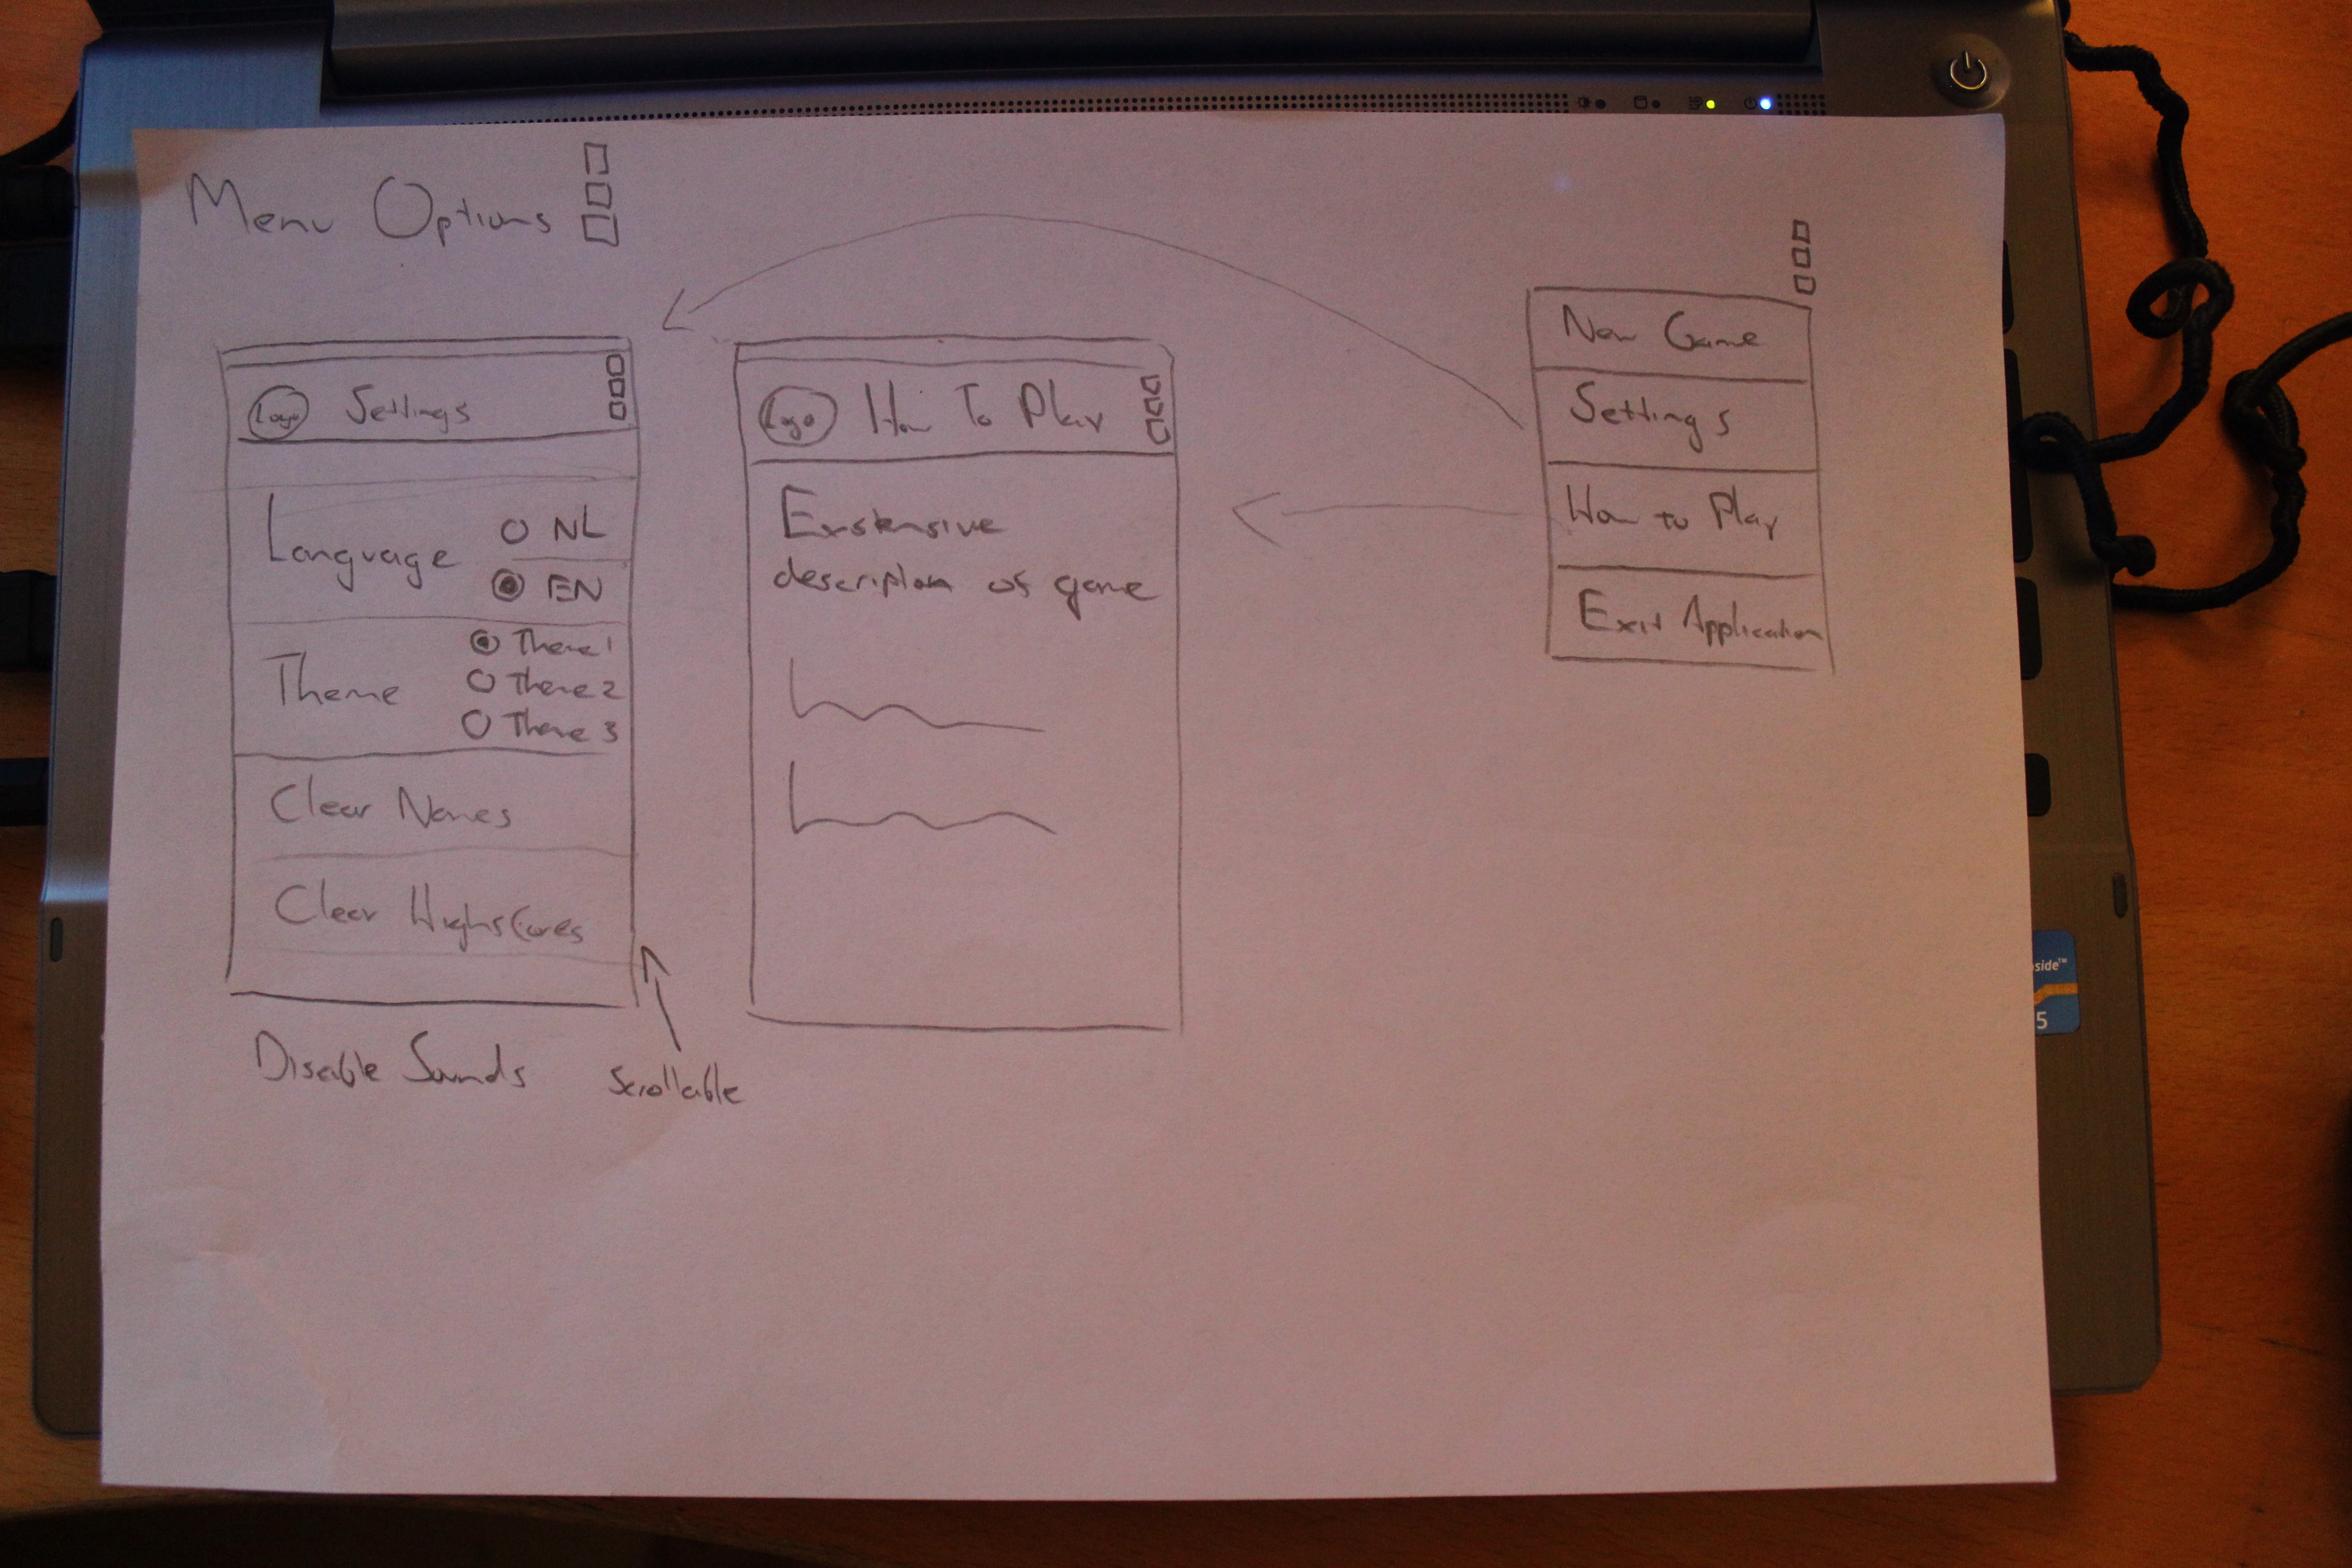 Menu Options
Logo Settings
Language
NL
EN
Theme
Theme 1
Theme 2
Theme 3
Clear Names
Clear Highscores
Disable Sounds
Scrollable
Logo How To Play
Exstensive
description of game
New Game
Settings
How to Play
Exit Application
side™
5